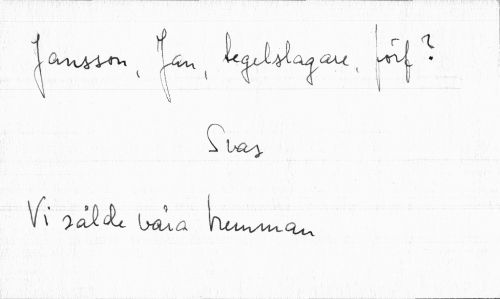 Jansson, Jan, tegelslagare, förf?
Svar
Vi sålde våra hemman